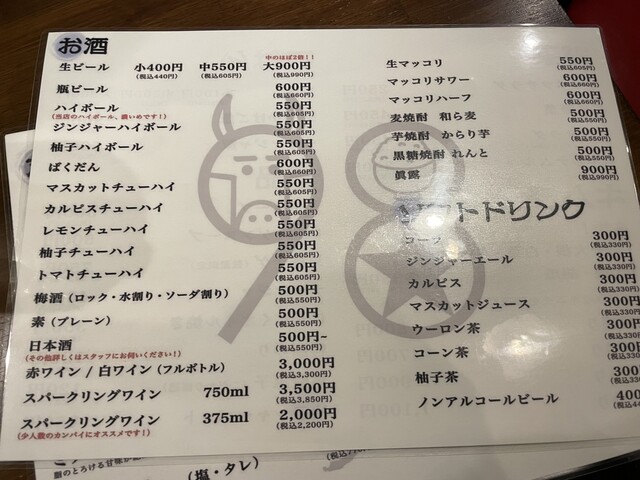 お酒
中のほぼ2倍！！
生ビール 小400円 中550円 大900円
(税込440円) (税込605円) (税込990円)
瓶ビール 600円
(税込660円)
ハイボール 550円
(当店のハイボール、濃いめです！) (税込605円)
ジンジャーハイボール 550円
(税込605円)
柚子ハイボール 550円
(税込605円)
ばくだん 600円
(税込660円)
マスカットチューハイ 550円
(税込605円)
カルピスチューハイ 550円
(税込605円)
レモンチューハイ 550円
(税込605円)
柚子チューハイ 550円
(税込605円)
トマトチューハイ 550円
(税込605円)
梅酒（ロック・水割り・ソーダ割り） 500円
(税込550円)
素（プレーン） 500円
(税込550円)
日本酒 500円~
(その他詳しくはスタッフにお伺いください！) (税込550円)
赤ワイン / 白ワイン（フルボトル） 3,000円
(税込3,300円)
スパークリングワイン 750ml 3,500円
(税込3,850円)
スパークリングワイン 375ml 2,000円
(少人数のカンパイにオススメです！) (税込2,200円)
生マッコリ 550円
(税込605円)
マッコリサワー 600円
(税込660円)
マッコリハーフ 600円
(税込660円)
麦焼酎 和ら麦 500円
(税込550円)
芋焼酎 からり芋 500円
(税込550円)
黒糖焼酎 れんと 500円
(税込550円)
眞露 900円
(税込990円)
ソフトドリンク
コーラ 300円
(税込330円)
ジンジャーエール 300円
(税込330円)
カルピス 300円
(税込330円)
マスカットジュース 300円
(税込330円)
ウーロン茶 300円
(税込330円)
コーン茶 300円
(税込330円)
柚子茶 300円
(税込330
ノンアルコールビール 400
(税込44
脂のとろける甘味が
（塩・タレ）